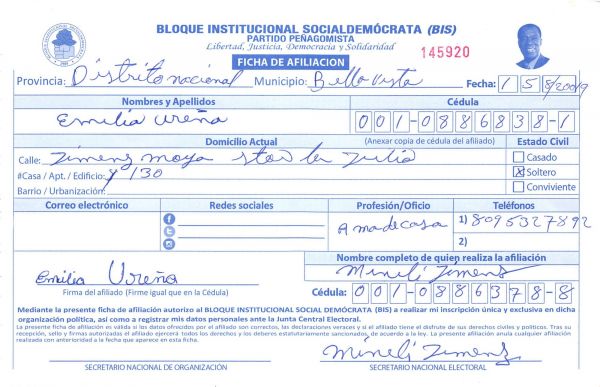 BLOQUE INSTITUCIONAL SOCIALDEMÓCRATA (BIS)
PARTIDO PEÑAGOMISTA
Libertad, Justicia, Democracia y Solidaridad
FICHA DE AFILIACION
145920
Provincia: Distrito nacional Municipio: Bella vista Fecha: 1 5
Nombres y Apellidos Cédula
Emilia Ureña 001-0886838-1
Domicilio Actual (Anexar copia de cédula del afiliado) Estado Civil
Calle: Jimenz moya Casado
#Casa / Apt. / Edificio: y 130 X Soltero
Barrio / Urbanización: Conviviente
Correo electrónico Redes sociales Profesión/Oficio Teléfonos
Ama de casa 1) 8095327892
2)
Nombre completo de quien realiza la afiliación
Minelí Jimenz
Emilia Ureña
Firma del afiliado (Firme igual que en la Cédula) Cédula: 001-0886378-8
Mediante la presente ficha de afiliación autorizo al BLOQUE INSTITUCIONAL SOCIAL DEMÓCRATA (BIS) a realizar mi inscripción única y exclusiva en dicha
organización política, así como a registrar mis datos personales ante la Junta Central Electoral.
La presente ficha de afiliación es válida si los datos ofrecidos por el afiliado son correctos, las declaraciones versaces y si el afiliado tiene el disfrute de sus derechos civiles y políticos. Tras su
recepción, sello y firmas autorizadas el afiliado ejercerá todos los derechos y los deberes estatutariamente sancionados, de acuerdo a la ley. La presente afiliación anula cualquier afiliación
realizada con anterioridad a la fecha que aparece en esta ficha.
Minelí Jimenz
SECRETARIO NACIONAL DE ORGANIZACIÓN SECRETARIO NACIONAL ELECTORAL